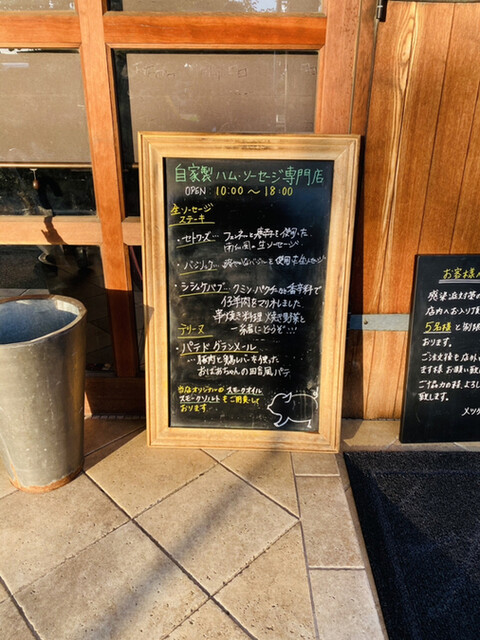 自家製ハム・ソーセージ専門店
OPEN 10:00～18:00
生ソーセージ
ステーキ
・セトワーズ…フェンネルと香辛子を使った
南仏風の生ソーセージ
・バジリック…バジルを使用した生ソーセージ
・シシュケバブ…クミン・パクチーなど香辛料で
仔羊肉をマリネしました
串焼き料理 焼き野菜と
一緒にどうぞ…
テリーヌ
・パテドグランメール
…豚肉と鶏レバーを使った
おばあちゃんの田舎風パテ
当店オリジナルのスモークオイル
スモークソルトもご用意して
おります
お客様へ
感染症対策の
店内へお入り頂
5名様と制限
おります。
ご注文後も店外
ます様お願い致
ご協力の程よろし
致します。
メツゲ